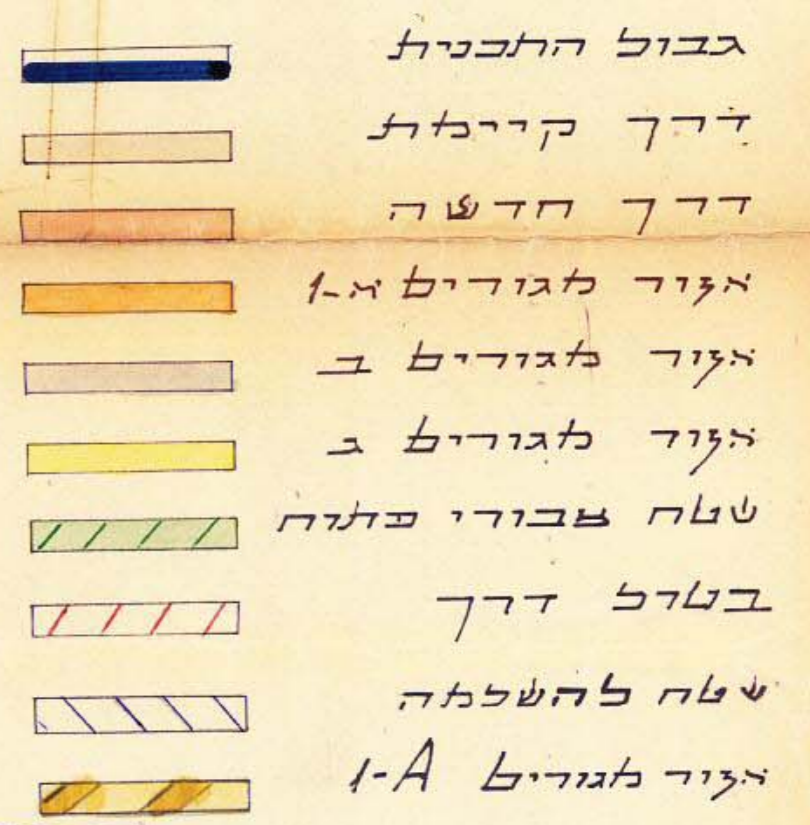 גבול התכנית
דרך קיימת
דרך חדשה
אזור מגורים א-1
אזור מגורים ב
אזור מגורים ג
שטח צבורי פתוח
בטול דרך
שטח להשלמה
אזור מגורים A-1